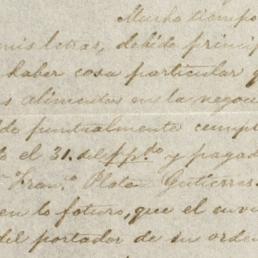 Mucho tiempo
mis letras, debido princip
haber cosa particular q
s alimentos en la negoc
de puntualmente cumpl
o el 31. del pp.do y pagad
Fran.co Plata Gutierres
en lo futuro, que el envi
del portador de su orde